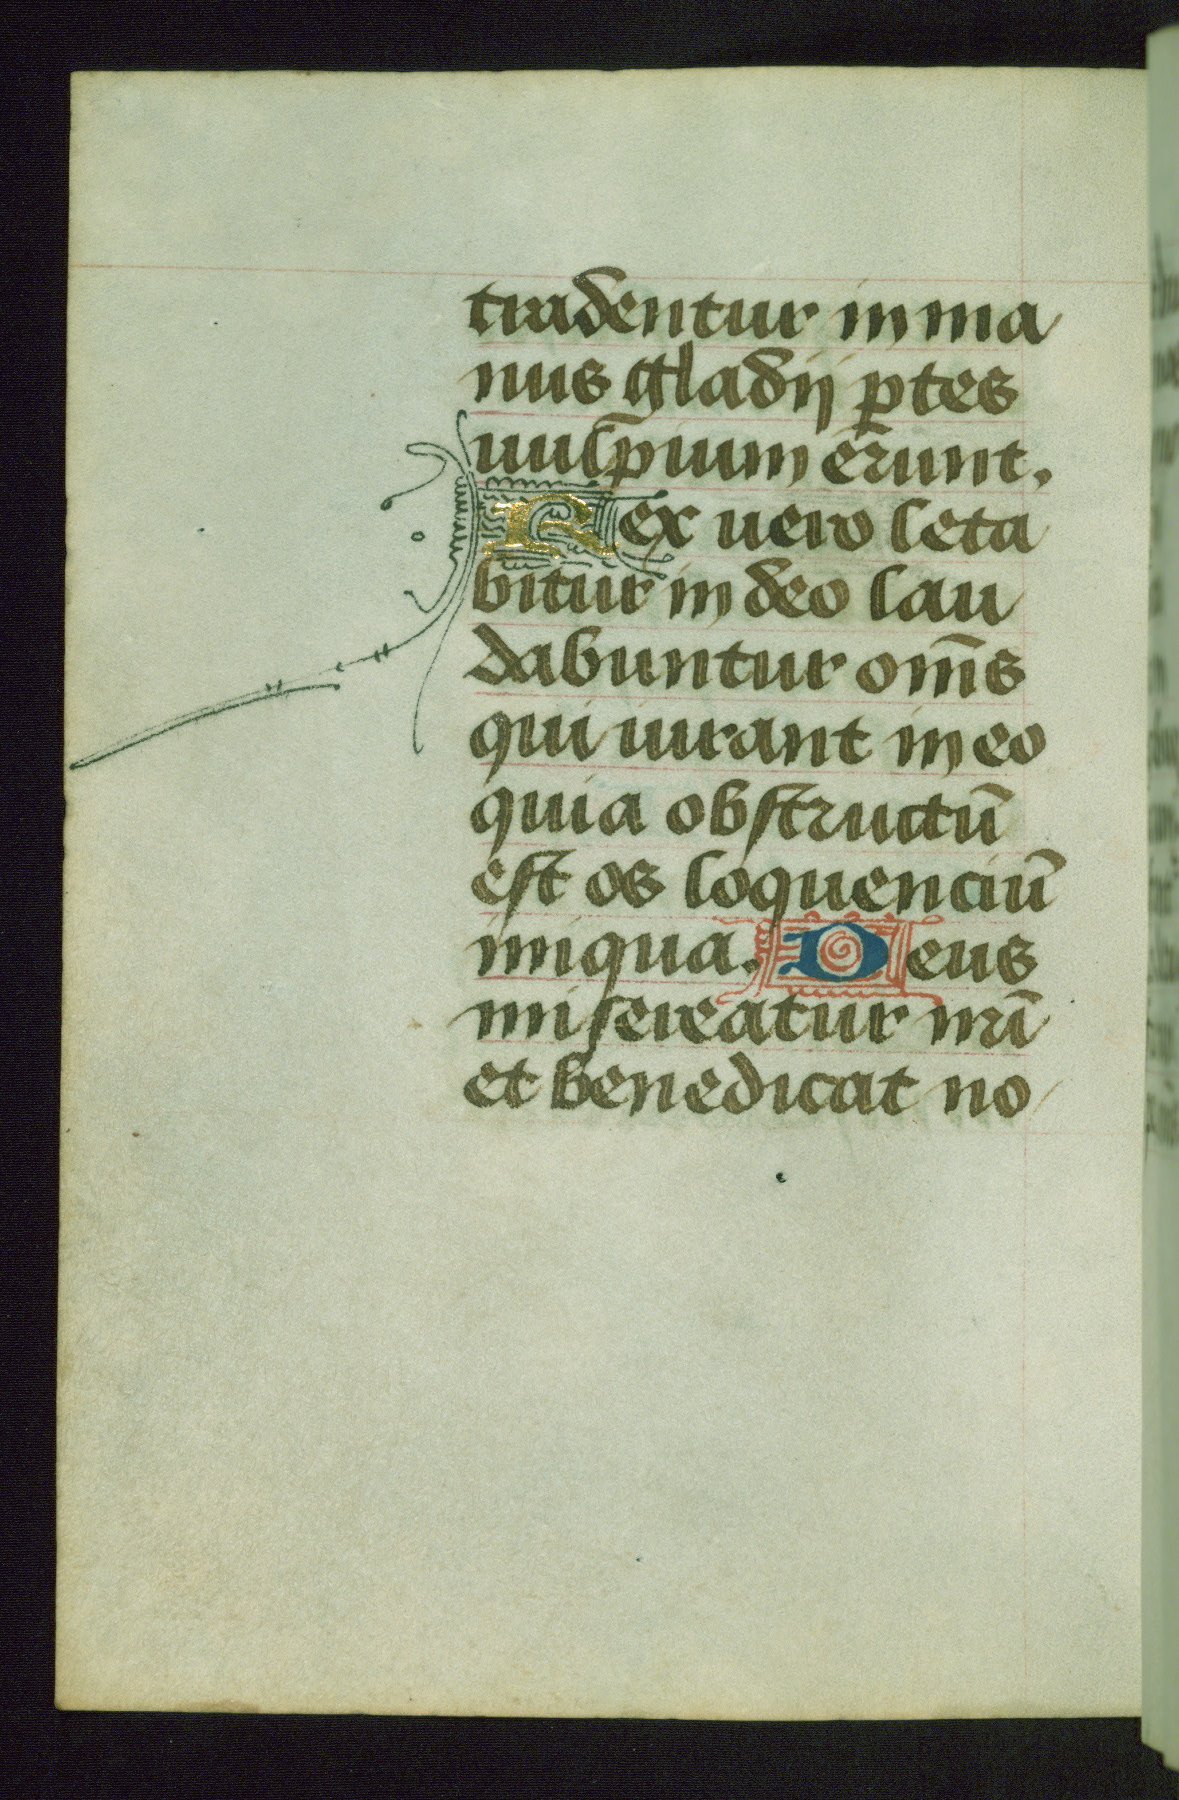 tradentur in ma
nus gladij p̱tes
uulpium erunt.
Rex uero leta
bitur in deo lau
dabuntur om̄s
qui iurant in eo
quia obstructū
est os loquenciū
iniqua. Deus
misereatur nr̄i
et benedicat no